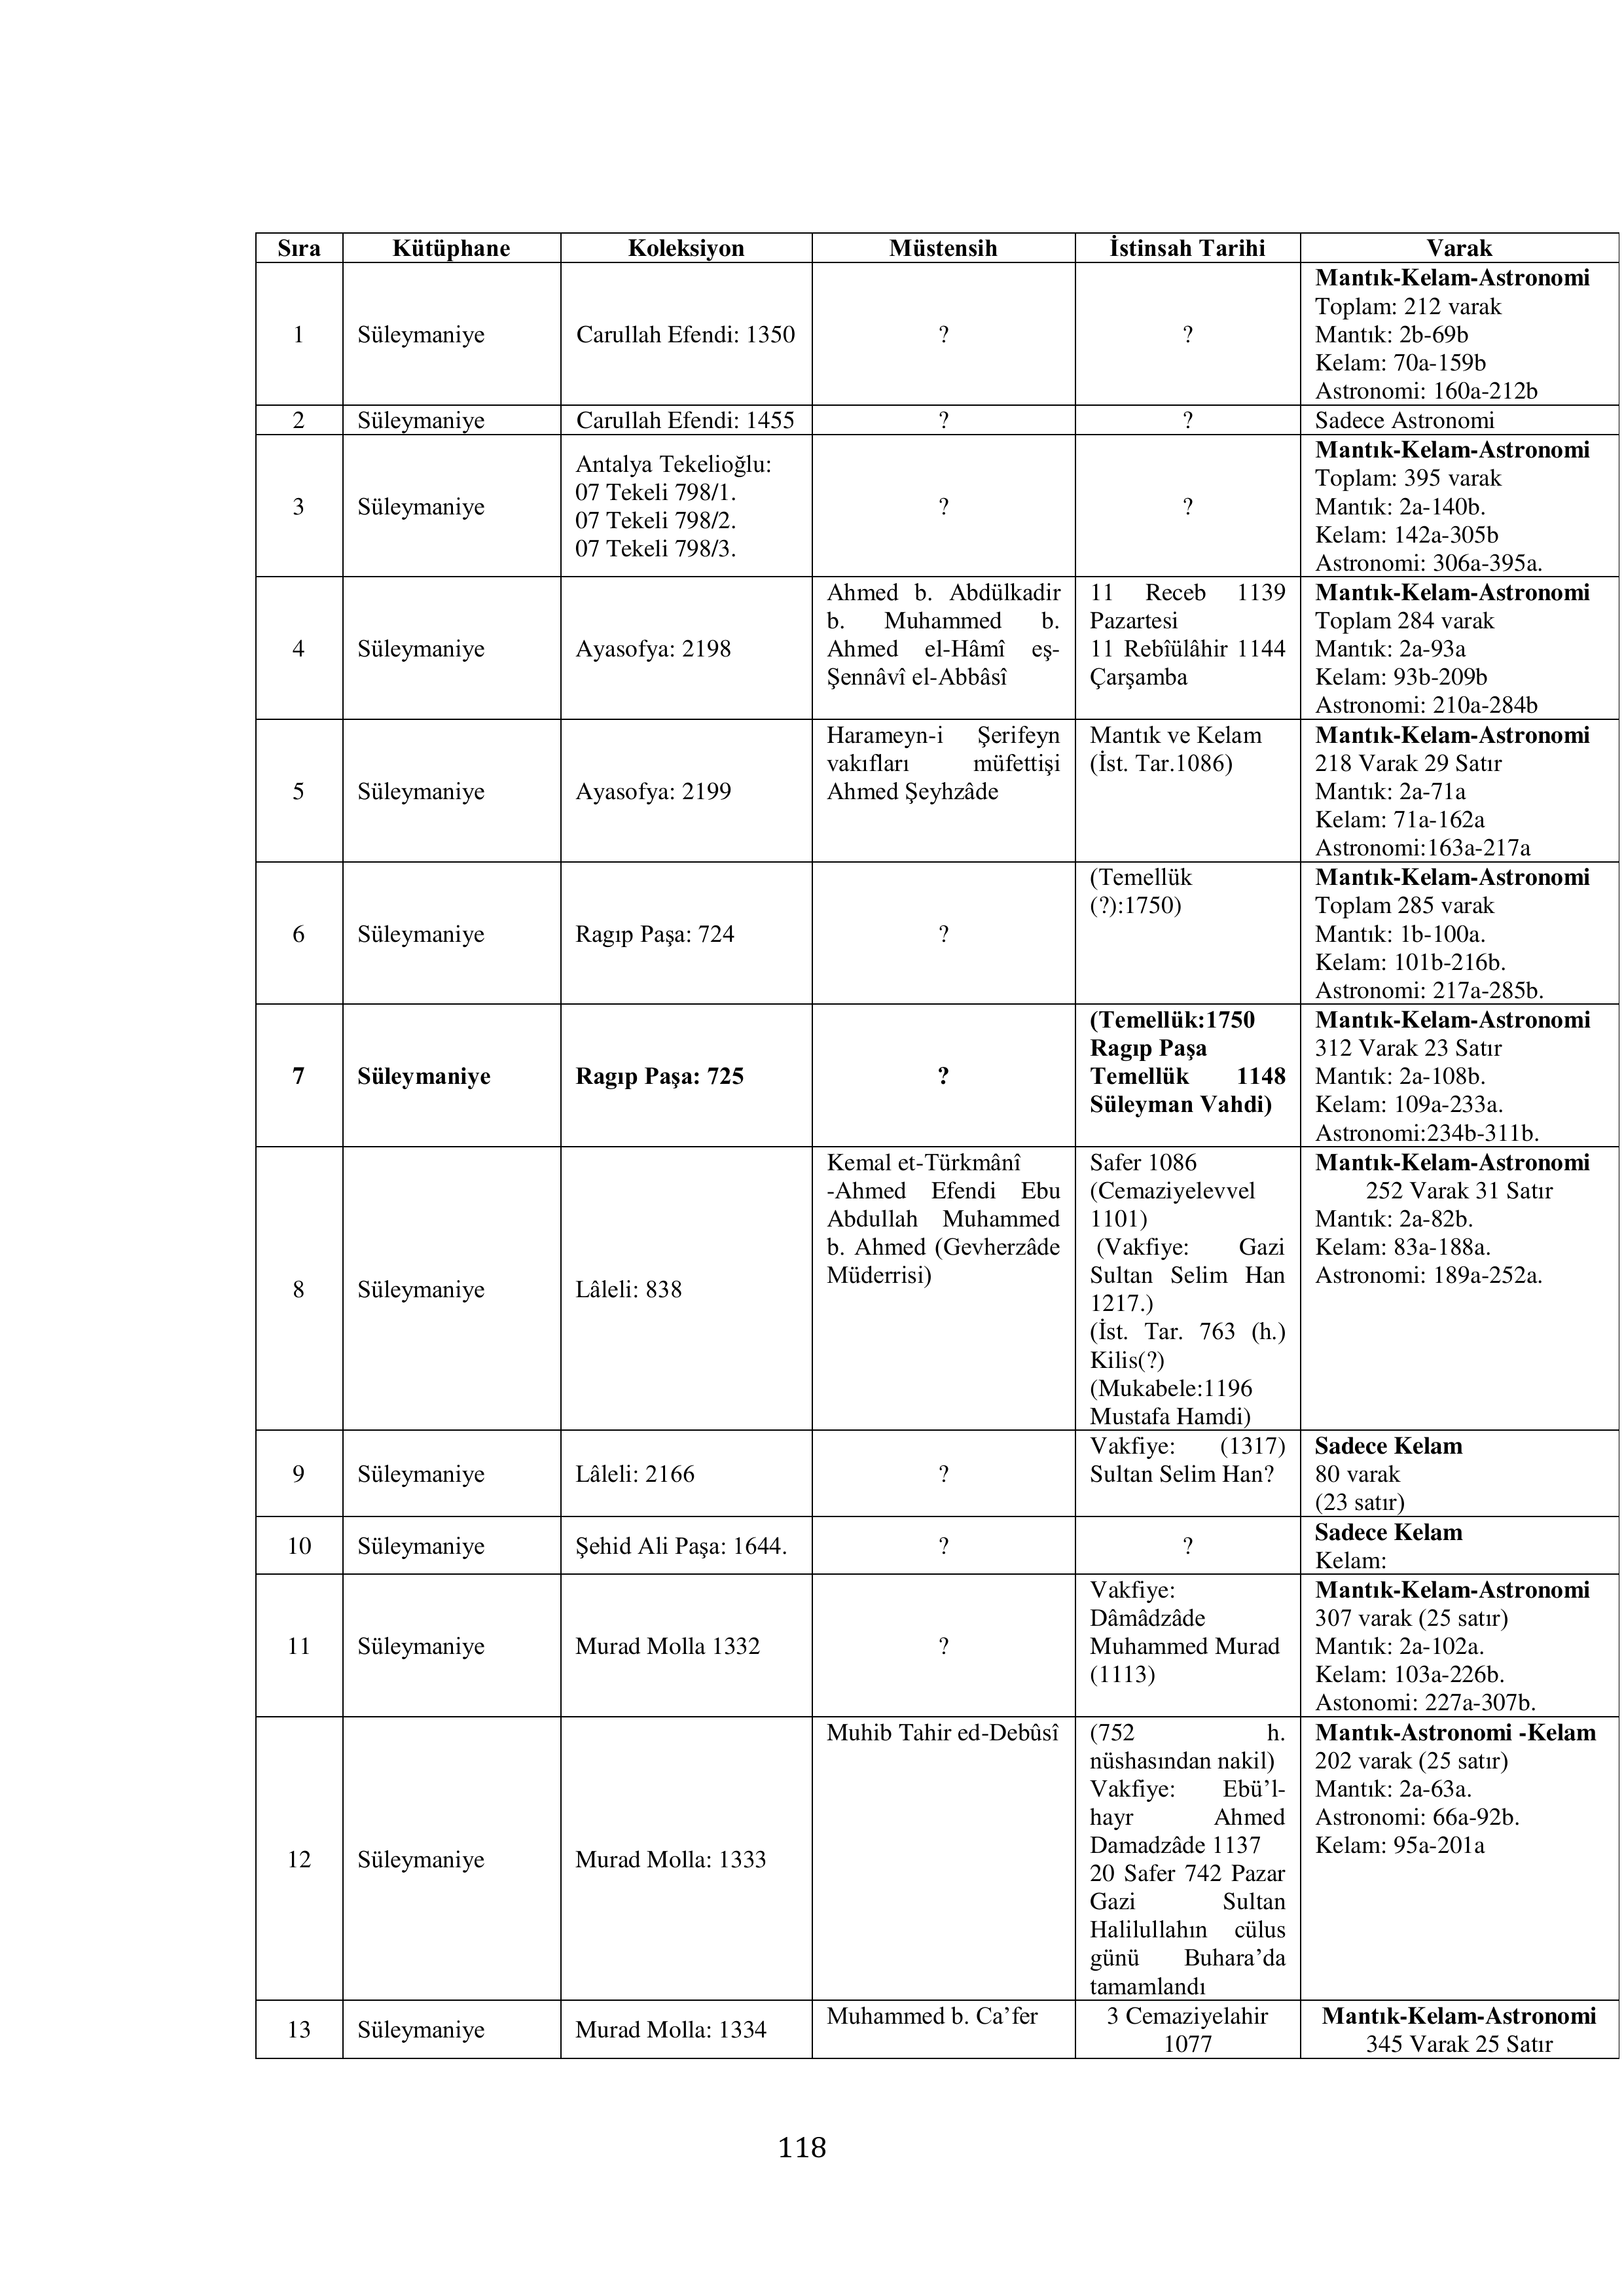 Sıra Kütüphane Koleksiyon Müstensih İstinsah Tarihi Varak
1 Süleymaniye Carullah Efendi: 1350 ? ? Mantık-Kelam-Astronomi
Toplam: 212 varak
Mantık: 2b-69b
Kelam: 70a-159b
Astronomi: 160a-212b
2 Süleymaniye Carullah Efendi: 1455 ? ? Sadece Astronomi
3 Süleymaniye
Antalya Tekelioğlu:
07 Tekeli 798/1.
07 Tekeli 798/2.
07 Tekeli 798/3.
? ?
Mantık-Kelam-Astronomi
Toplam: 395 varak
Mantık: 2a-140b.
Kelam: 142a-305b
Astronomi: 306a-395a.
4 Süleymaniye Ayasofya: 2198
Ahmed b. Abdülkadir
b. Muhammed b.
Ahmed el-Hâmî eş-
Şennâvî el-Abbâsî
11 Receb 1139
Pazartesi
11 Rebîülâhir 1144
Çarşamba
Mantık-Kelam-Astronomi
Toplam 284 varak
Mantık: 2a-93a
Kelam: 93b-209b
Astronomi: 210a-284b
5 Süleymaniye Ayasofya: 2199
Harameyn-i Şerifeyn
vakıfları müfettişi
Ahmed Şeyhzâde
Mantık ve Kelam
(İst. Tar.1086)
Mantık-Kelam-Astronomi
218 Varak 29 Satır
Mantık: 2a-71a
Kelam: 71a-162a
Astronomi:163a-217a
6 Süleymaniye Ragıp Paşa: 724 ?
(Temellük
(?):1750)
Mantık-Kelam-Astronomi
Toplam 285 varak
Mantık: 1b-100a.
Kelam: 101b-216b.
Astronomi: 217a-285b.
7 Süleymaniye Ragıp Paşa: 725 ?
(Temellük:1750
Ragıp Paşa
Temellük 1148
Süleyman Vahdi)
Mantık-Kelam-Astronomi
312 Varak 23 Satır
Mantık: 2a-108b.
Kelam: 109a-233a.
Astronomi:234b-311b.
8 Süleymaniye Lâleli: 838
Kemal et-Türkmânî
-Ahmed Efendi Ebu
Abdullah Muhammed
b. Ahmed (Gevherzâde
Müderrisi)
Safer 1086
(Cemaziyelevvel
1101)
(Vakfiye: Gazi
Sultan Selim Han
1217.)
(İst. Tar. 763 (h.)
Kilis(?)
(Mukabele:1196
Mustafa Hamdi)
Mantık-Kelam-Astronomi
252 Varak 31 Satır
Mantık: 2a-82b.
Kelam: 83a-188a.
Astronomi: 189a-252a.
9 Süleymaniye Lâleli: 2166 ?
Vakfiye: (1317)
Sultan Selim Han?
Sadece Kelam
80 varak
(23 satır)
10 Süleymaniye Şehid Ali Paşa: 1644. ? ?
Sadece Kelam
Kelam:
11 Süleymaniye Murad Molla 1332 ?
Vakfiye:
Dâmâdzâde
Muhammed Murad
(1113)
Mantık-Kelam-Astronomi
307 varak (25 satır)
Mantık: 2a-102a.
Kelam: 103a-226b.
Astonomi: 227a-307b.
12 Süleymaniye Murad Molla: 1333
Muhib Tahir ed-Debûsî
(752 h.
nüshasından nakil)
Vakfiye: Ebü’l-
hayr Ahmed
Damadzâde 1137
20 Safer 742 Pazar
Gazi Sultan
Halilullahın cülus
günü Buhara’da
tamamlandı
Mantık-Astronomi -Kelam
202 varak (25 satır)
Mantık: 2a-63a.
Astronomi: 66a-92b.
Kelam: 95a-201a
13 Süleymaniye Murad Molla: 1334
Muhammed b. Ca’fer
3 Cemaziyelahir
1077
Mantık-Kelam-Astronomi
345 Varak 25 Satır
118